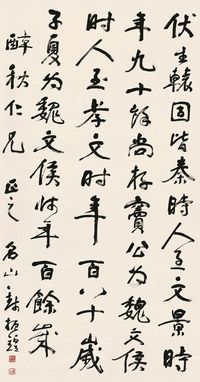 伏生轅固皆秦時人至文景時
年九十餘尚存竇公為魏文侯
時人至孝文時年百八十歲
子夏為魏文侯時年百餘歲
醉秋仁兄正之名山錢振鍠